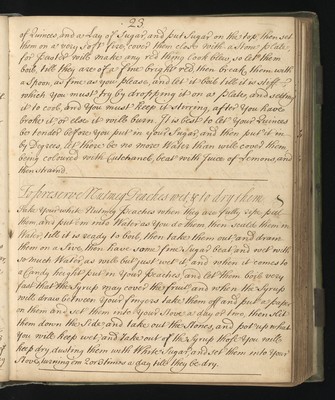 23
of Quinces, and a Lay of Sugar, and put Sugar on the top, then set
them on a very Soft fire, cover them close with a Stone plate,
for Peuter will make any red thing look blew, so let them
boyl, till they are of a fine bright red, then break them with
a Spoon, as fine as you please, and let it boyl till it is stiff
which you must try by dropping it on a plate, and setting
it to cool, and You must keep it stirring, after You have
broke it, or else it will burn. It is best to let Your Quinces
be tender before you put in Your Sugar, and then put it in
by Degrees, let there be no more Water than will cover them,
being coloured with Cutchaneel, beat with Juce of Lemons, and
then strain'd.
To preserve Nutmeg Peaches wet, & to dry them
Take Your white Nutmeg Peaches when they are fully ripe, peel
them, and put em into Water as You do them, then scald them in
Water, till it is ready to boyl, then take them out and drain
them on a Sive, then have some fine Sugar beat and wet with
so much Water, as will but just wet it, and when it comes to
a Candy height put in Your Peaches, and let them boyle very
fast that the Syrup may cover the fruit, and when the Syrup
will draw between Your fingers take them off and put a paper
on them and set them into Your Stove a day or two, then slit
them down the Side and take out the Stones, and pot up what
You will keep wet, and Take out of the Syrup those You will
keep dry, dusting them with White Sugar, and set them into Your
Stove, turning em 2 or 3 times a day till they be dry.